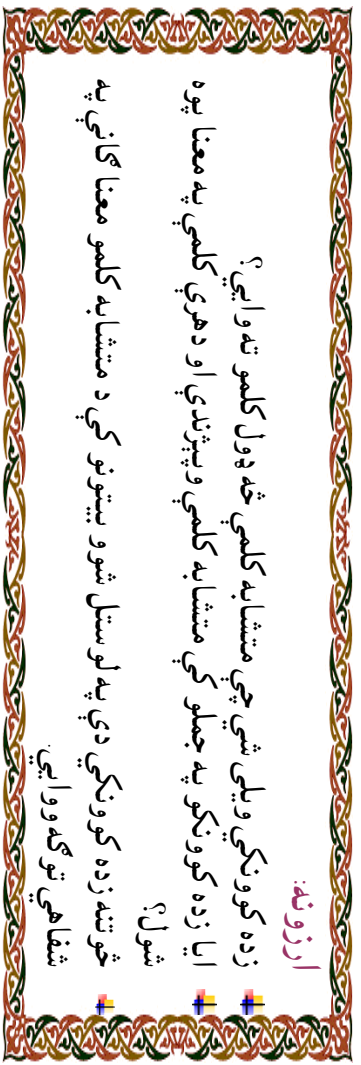 ارزونه:
زده کوونکي ويلی شي چي متشابه کلمې څه ډول کلمو ته وايي؟
ايا زده کوونکو په جملو کې متشابه کلمې وپيژندې او دهرې کلمې په معنا پوه
شول؟
څو تنه زده کوونکي دي په لوستل شوو بيتونو کې د متشابه کلمو معنا گانې په
شفاهي توگه ووايي.